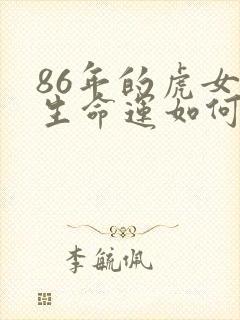 86年的虎女
生命运如何
李毓佩